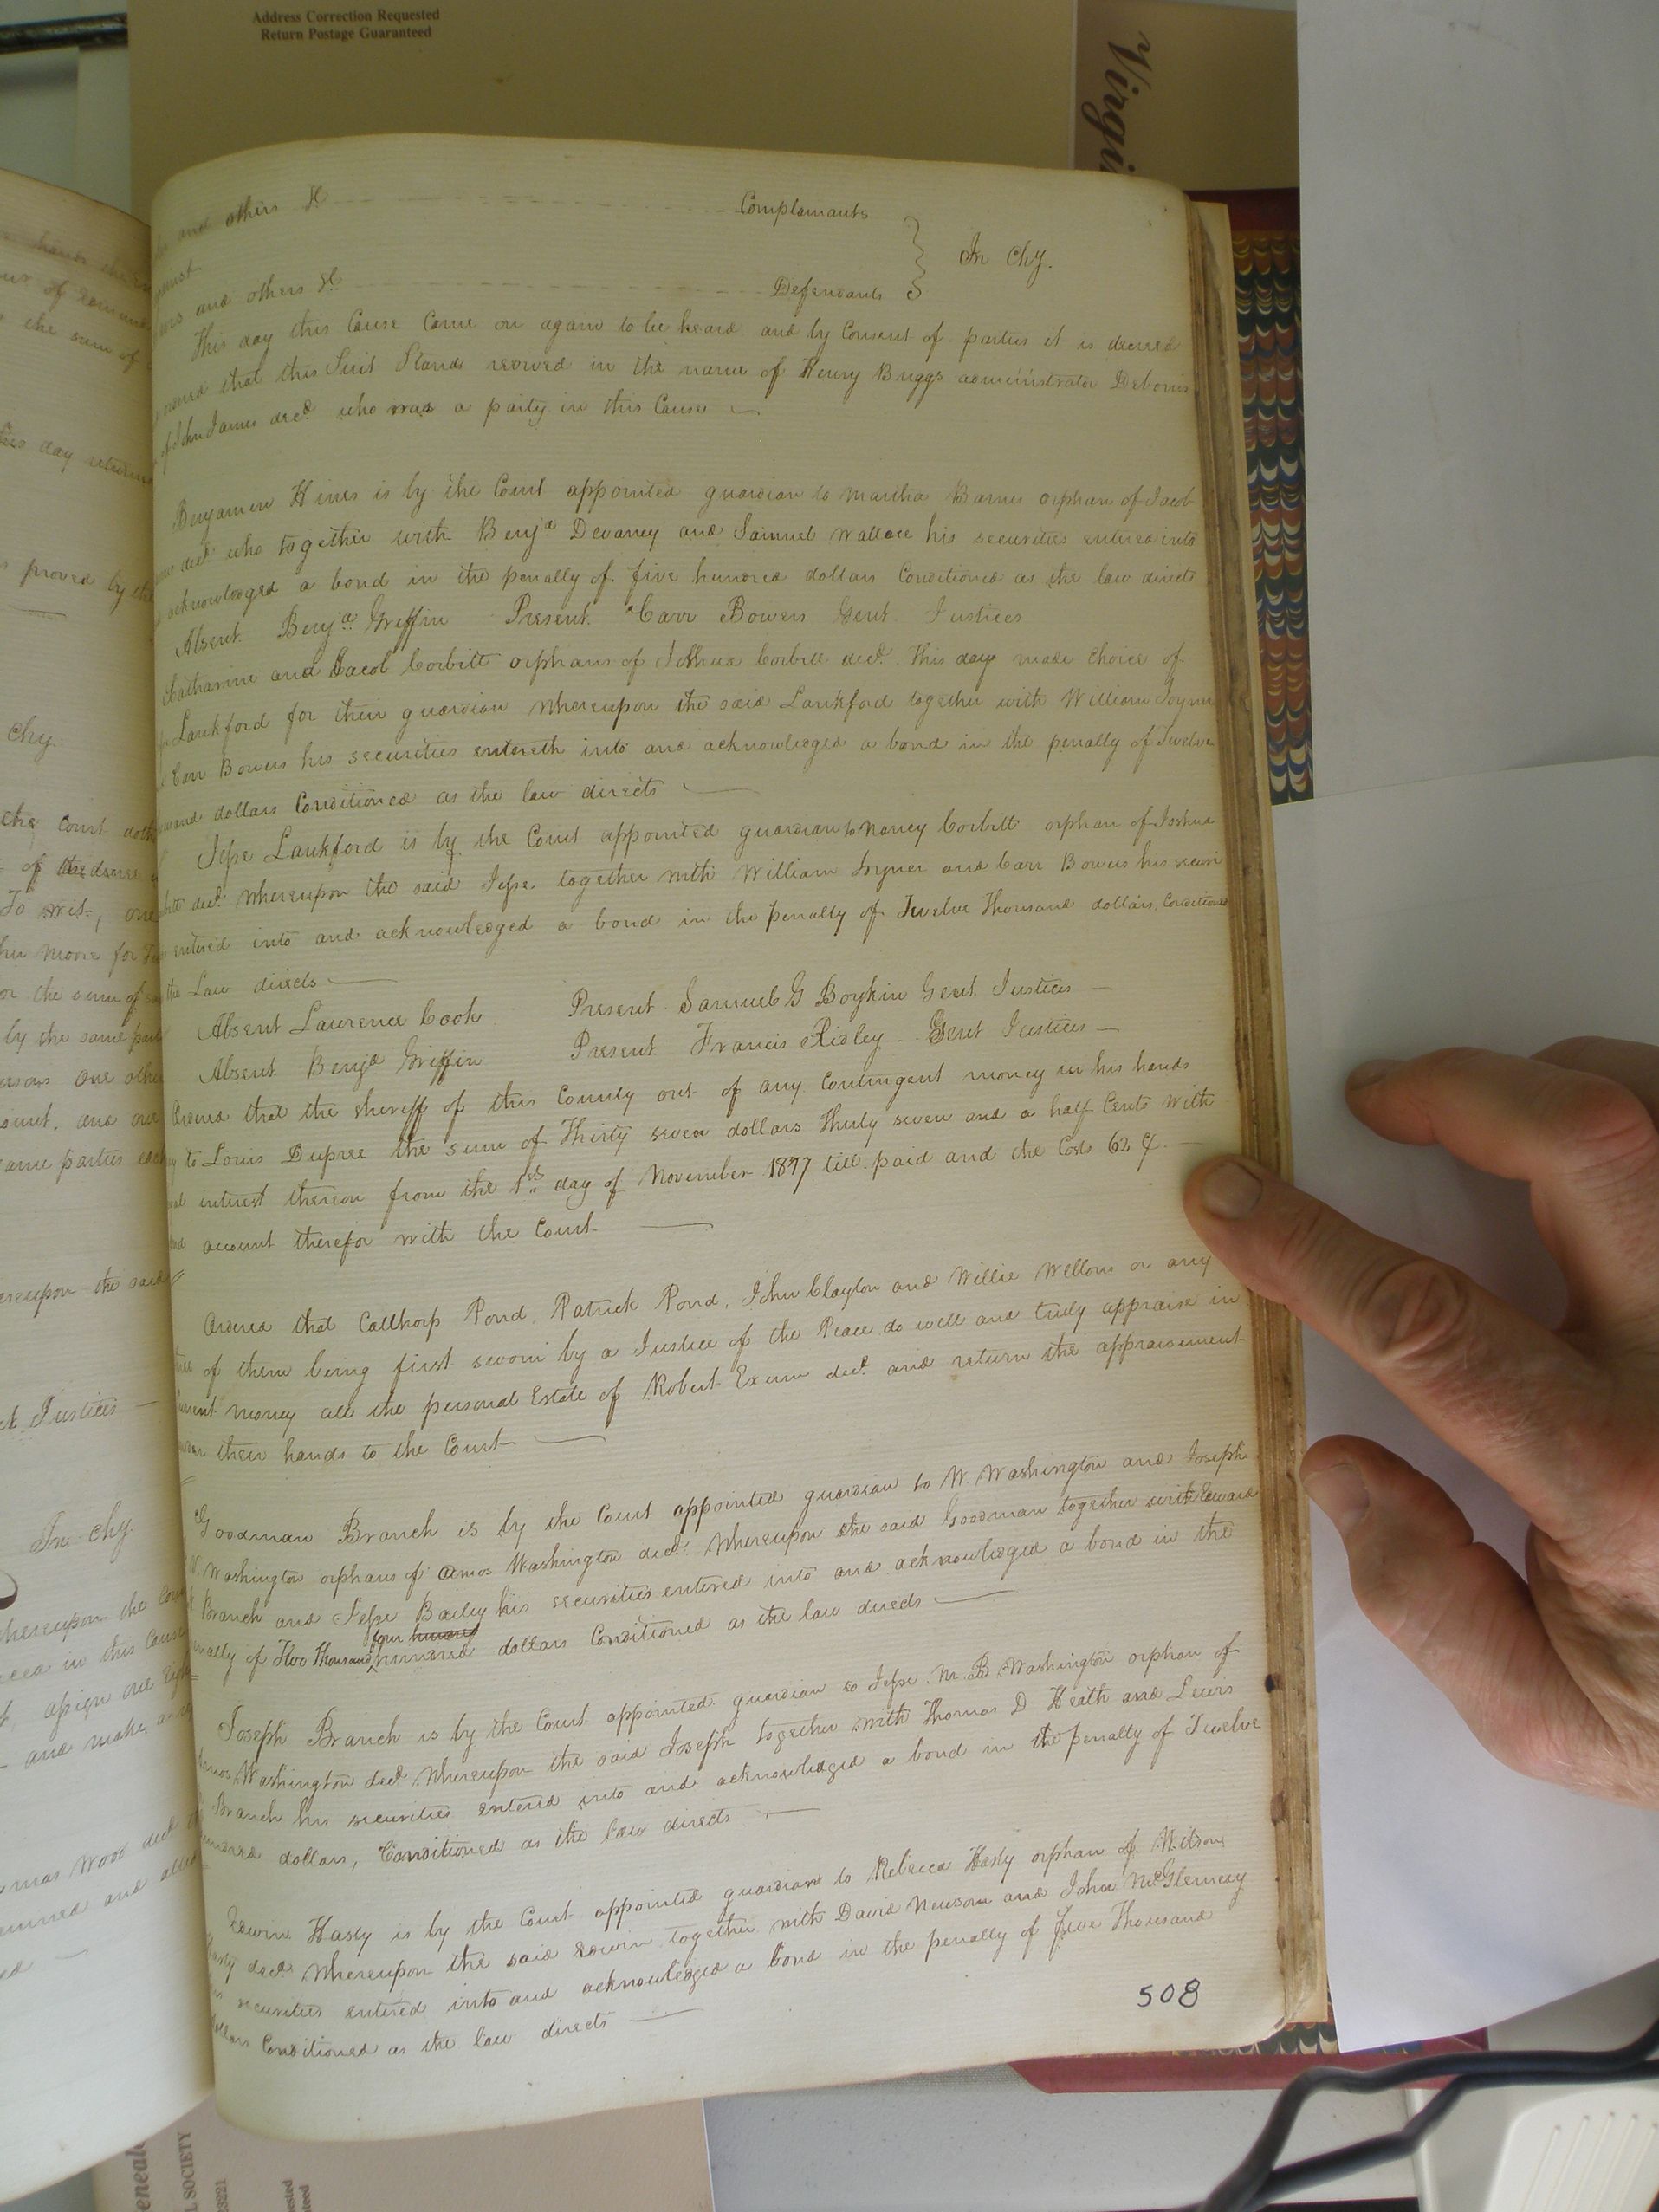 Address Correction Requested
Return Postage Guaranteed
Virgi
and others &c Complainants
In Chy.
and others &c Defendants
This day this Cause Came on again to be heard and by Consent of parties it is decreed
that this Suit Stand revived in the name of Henry Briggs administrator Debonis
of John James decd. who was a party in this Cause
Benjamin Hines is by the Court appointed guardian to Martha Barnes orphan of Jacob
decd. who together with Benja Devaney and Samuel Wallace his securities entered into
acknowledged a bond in the penalty of five hundred dollars Conditioned as the law directs
Absent Benja Griffin Present Carr Bowers Gent. Justices
Catharine and Jacob Corbitt orphans of Joshua Corbitt decd. This day made choice of
Lankford for their guardian whereupon the said Lankford together with William Joyner
Carr Bowers his securities entereth into and acknowledged a bond in the penalty of Twelve
dollars Conditioned as the law directs
Jesse Lankford is by the Court appointed guardian to Nancy Corbitt orphan of Joshua
decd. whereupon the said Jesse together with William Joyner and Carr Bowers his securi
entered into and acknowledged a bond in the penalty of Twelve Thousand dollars, Conditioned
the Law directs
Absent Lawrence Cook Present Samuel G Boykin Gent. Justices
Absent Benja Griffin Present Francis Ridley Gent Justices
Ordered that the sheriff of this County out of any Contingent money in his hands
to Louis Dupree the sum of Thirty seven dollars Thirty seven and a half Cents with
interest thereon from the 1st day of November 18 7 till paid and the Costs 62 ¢
account therefor with the Court
Ordered that Callthorp Pond, Patrick Pond, John Clayton and Willie Wellons or any
of them being first sworn by a Justice of the Peace do well and truly appraise in
money all the personal Estate of Robert Exum decd. and return the appraisement
their hands to the Court
Goodman Branch is by the Court appointed guardian to W. Washington and Joseph
W. Washington orphans of Amos Washington decd. Whereupon the said Goodman together with Edward
Branch and Jesse Bailey his securities entered into and acknowledged a bond in the
four hundred
of Two Thousand hundred dollars Conditioned as the law directs
Joseph Branch is by the Court appointed guardian to Jesse M. B. Washington orphan of
Amos Washington decd. Whereupon the said Joseph together with Thomas D Heath and Lewis
Branch his securities entered into and acknowledged a bond in the penalty of Twelve
dollars, Conditioned as the law directs
Edwin Hasty is by the Court appointed guardian to Rebecca Hasty orphan of Wilson
Hasty decd. Whereupon the said Edwin together with David Newsom and John McGlemery
securities entered into and acknowledged a bond in the penalty of Five Thousand
dollars Conditioned as the law directs
508
the sum of
day
proved by the
Chy.
the Court doth
To wit, one
more for
or the sum of
by the same
one other
and one
same parties
whereupon the said
Justices
In Chy.
whereupon the
in this Cause
assign one
and make
Wood decd
and
SOCIETY
23221